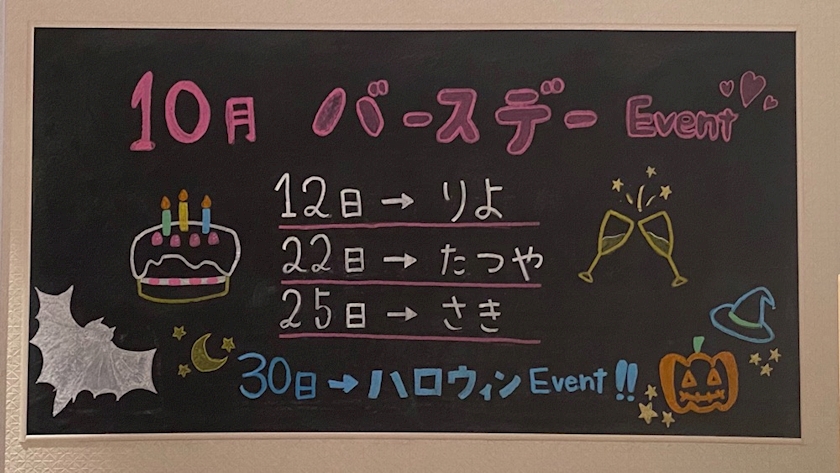 10月 バースデー Event
12日→りよ
22日→たつや
25日→さき
30日→ハロウィン Event!!